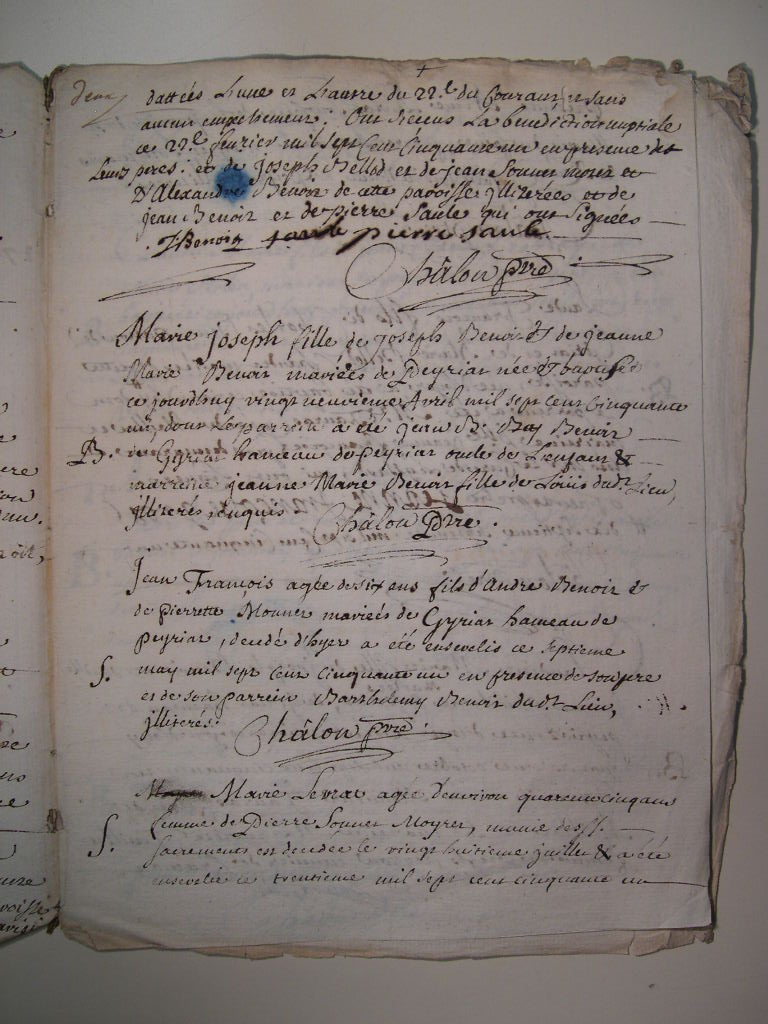 deux
dattées L'une et L'autre du 22.e du Courant, et sans
aucun empechement; Ont receus La benediction nuptiale
ce 22.e fevrier mil sept cent cinquante un en presence des
Leurs peres; et de joseph Bellod et de jean Sonner et
D'Alexandre Benoit de cette paroisse illiterées et de
jean Benoit et de pierre Saule qui ont Signées
JBenoit pierre saule
Châlon ptre
Marie joseph fille de joseph Benoit & de jeanne
Marie Benoit mariées de Peyriat née & batisée
ce jourdhuy vingt neuvieme Avril mil sept cent cinquante
un, dont Le parrein a été jean B. Bay Benoit
B. de Gyriat hameau de peyriat oncle de L'enfant &
marreine jeanne Marie Benoit fille de Loüis dud.t Lieu,
illiterés, enquis Châlon Ptre.
Jean François agée de six ans fils d'Andre Benoit &
de pierrette Monner mariées de Gyriat hameau de
peyriat, decedé d'hyer a été ensevelis ce septieme
S. may mil sept cent cinquante un en presence de son pere
et de son parrein Barthelemy Benoit dud.t Lieu,
illiterés. Châlon ptre.
Marie Levrat agée d'environ quarente cinq ans
femme de Pierre Sonner Moyret, munie des SS.
S. sacrements est decedée le vingt huitieme juillet & a été
ensevelie ce trentieme mil sept cent cinquante un